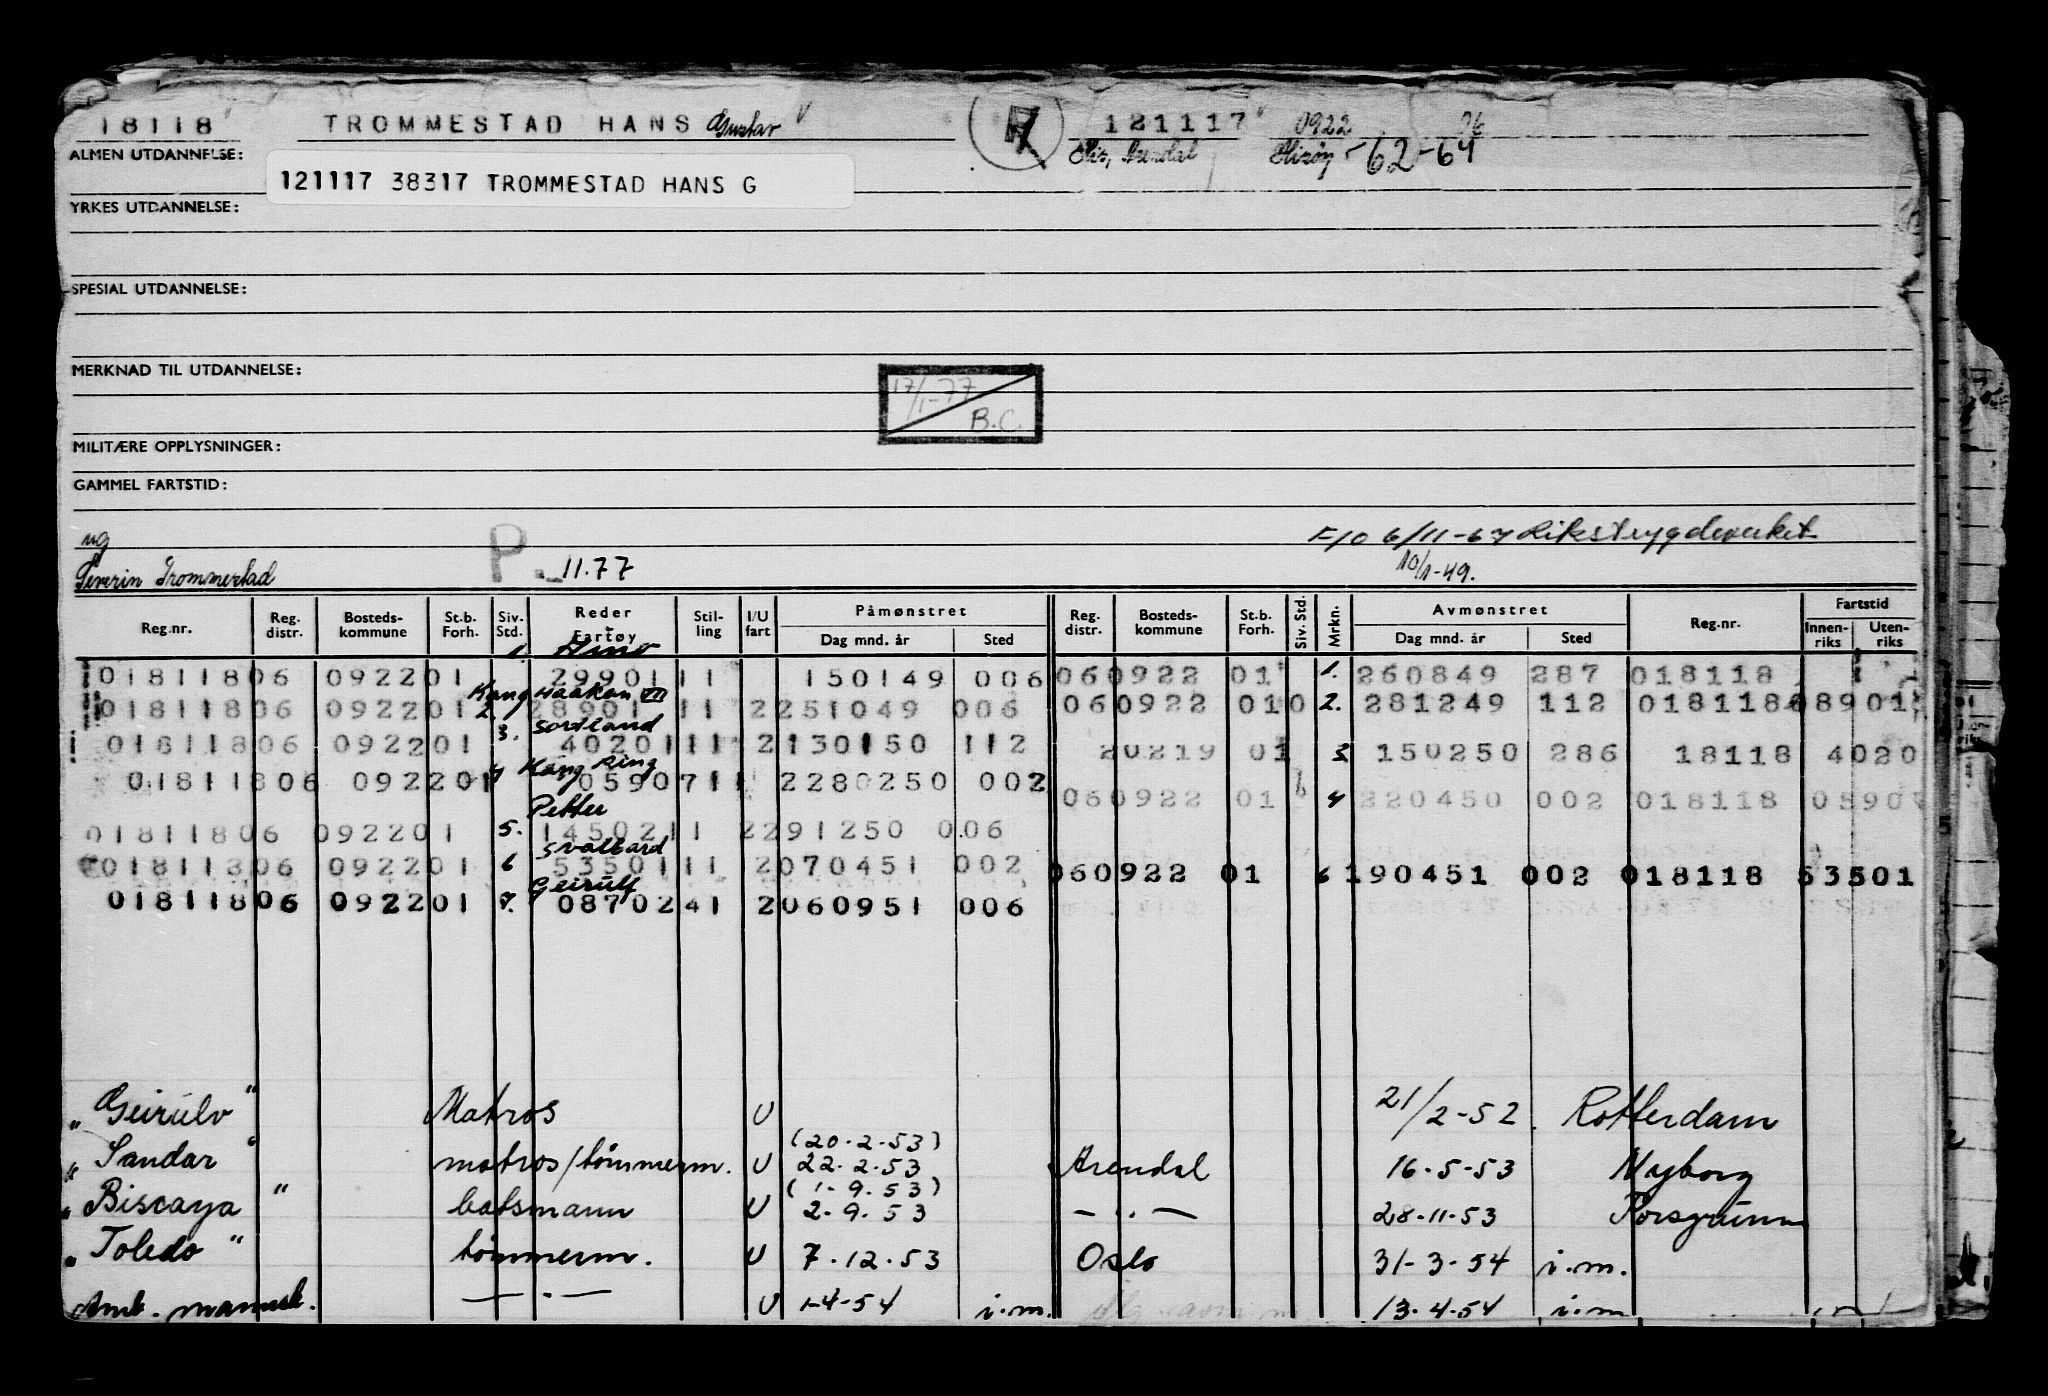 18118 TROMMESTAD HANS Gustav 121117 0922
ALMEN UTDANNELSE: His, Arendal Hisøy -62-64
121117 38317 TROMMESTAD HANS G
YRKES UTDANNELSE:
SPESIAL UTDANNELSE:
MERKNAD TIL UTDANNELSE:
17/1-77
B.C.
MILITÆRE OPPLYSNINGER:
GAMMEL FARTSTID:
ug P. 11.77 F/O 6/11-67 Rikstrygdeverket
Severin Trommestad 10/1-49.
Reg.nr. Reg. distr. Bosteds-kommune St.b. Forh. Siv. Std. Reder - Fartøy Stil-ling I/U fart Påmønstret Dag mnd. år Sted Reg. distr. Bosteds-kommune St.b. Forh. Siv. Std. Mrkn. Avmønstret Dag mnd. år Sted Reg.nr. Fartstid Innen-riks Uten-riks
1.
018118 06 0922 01 29901 11 150149 006 06 0922 01 1. 260849 287 018118
Kong Haakon VII
018118 06 0922 01 2. 28901 11 2 251049 006 06 0922 01 0 2. 281249 112 018118 08901
3. Sordland
018118 06 0922 01 40201 11 2 130150 112 20219 01 3 150250 286 18118 4020
4 Kong Ring
018118 06 0922 01 05907 11 2 280250 002 06 0922 01 4 220450 002 018118 0590
Petter
018118 06 0922 01 5. 14502 11 2 291250 006
Svalbard
018118 06 0922 01 6 53501 11 2 070451 002 06 0922 01 6 190451 002 018118 53501
Geirulf
018118 06 0922 01 7. 08702 41 2 060951 006
"Geirulv" Matros U 21/2-52. Rotterdam
(20-2-53)
"Sandar" matros/tømmerm. U 22-2-53 Arendal 16-5-53 Nyborg
(1-9.53)
"Biscaya" båtsmann U 2-9.53 - " - 28-11-53 Porsgrunn
"Toledo" tømmerm. U 7-12-53 Oslo 31-3-54 i.m.
Amb. mannsk. - " - U 1-4-54 i.m. 13-4-54 i.m